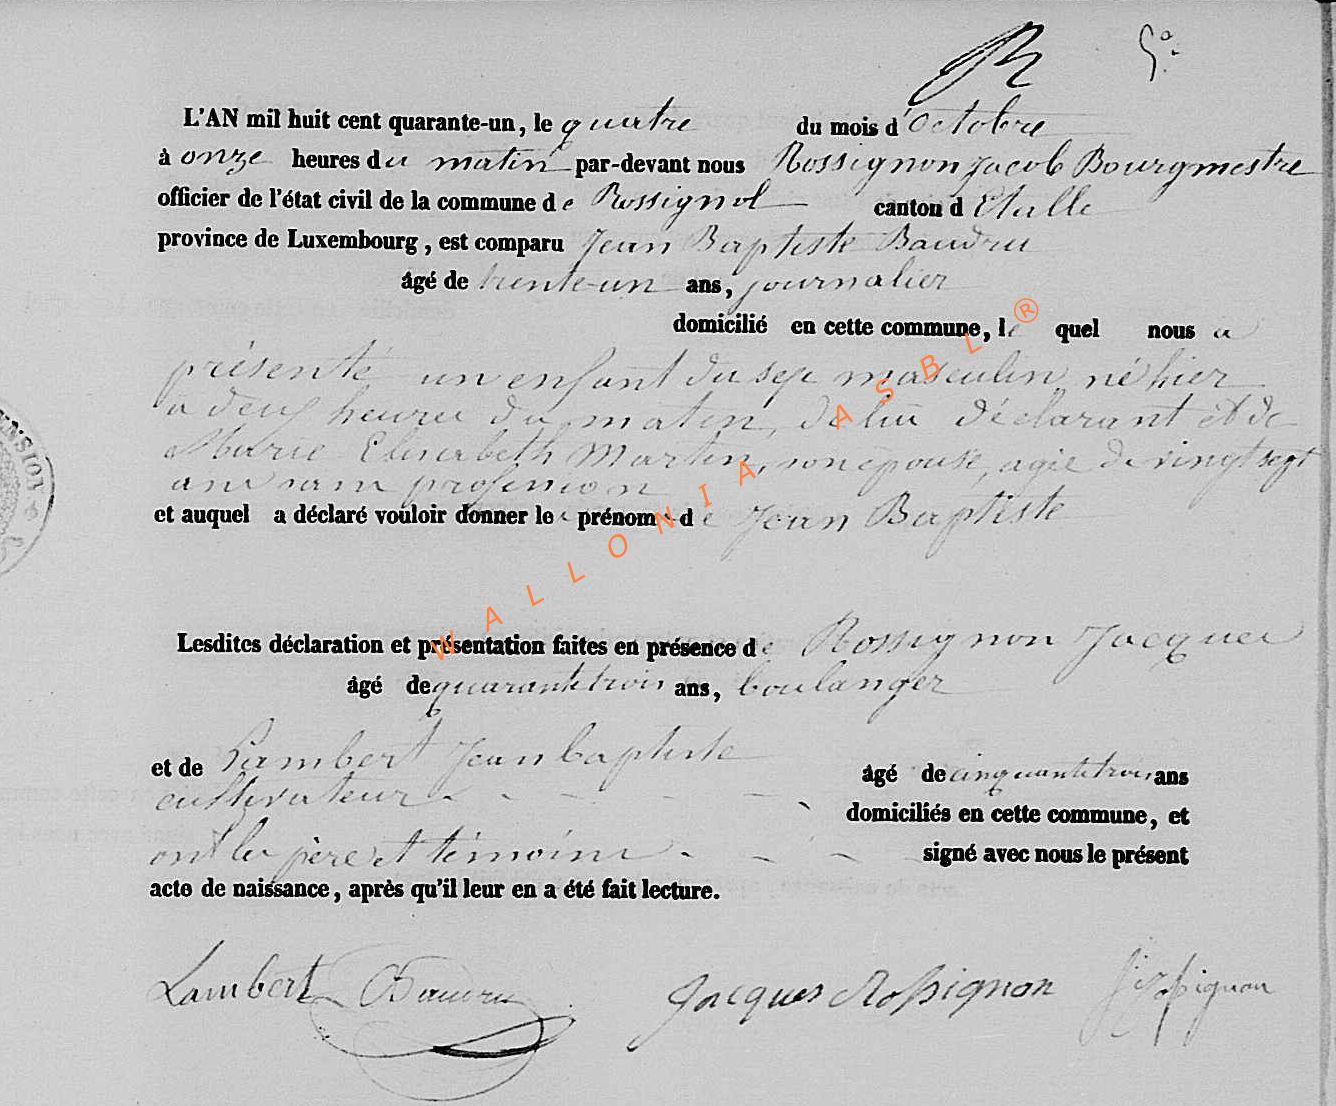 R 5°
L'AN mil huit cent quarante-un, le quatre du mois d'Octobre
à onze heures du matin par-devant nous Rossignon Jacob Bourgmestre
officier de l'état civil de la commune de Rossignol canton d Etalle
province de Luxembourg, est comparu Jean Baptiste Baudru
âgé de trente-un ans, journalier
domicilié en cette commune, le quel nous a
présenté un enfant du sexe masculin, né hier
a deux heures du matin, de lui déclarant et de
Marie Elisabeth Martin, son épouse, agée de vingt sept
ans sans profession
et auquel a déclaré vouloir donner le prénom de Jean Baptiste
Lesdites déclaration et présentation faites en présence de Rossignon Jacques
âgé de quarante trois ans, boulanger
et de Lambert Jean baptiste âgé de cinquante trois ans
cultivateur
domiciliés en cette commune, et
ont les père et témoins signé avec nous le présent
acte de naissance, après qu'il leur en a été fait lecture.
Lambert Baudru Jacques Rossignon J Rossignon
WALLONIA ASBL ®